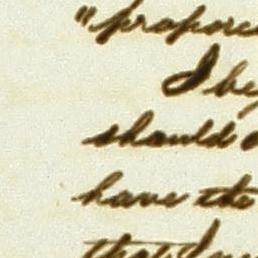 "propose
I be
should
have the
that I